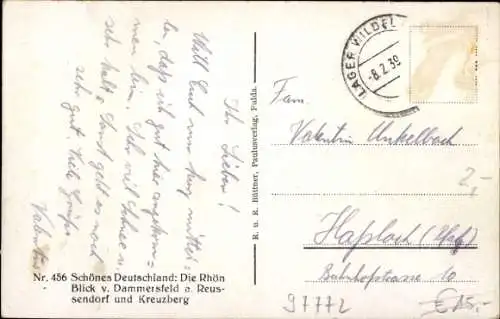 Ihr Lieben!
Will Euch nur kurz mittei=
len, daß ich gut hier angekom=
men bin. Sehr viel Schnee u.
sehr kalt. Sonst geht es noch
sehr gut. Viele Grüße
Valentin
Nr. 456 Schönes Deutschland: Die Rhön
Blick v. Dammersfeld a. Reus-
sendorf und Kreuzberg
R. u. E. Büttner, Paulusverlag, Fulda.
LAGER WILDFL
-8.2.39
Fam.
Valentin Unkelbach
Haßloch (Pfalz)
Bahnhofstrasse 10
2,-
97772
€ 15,-